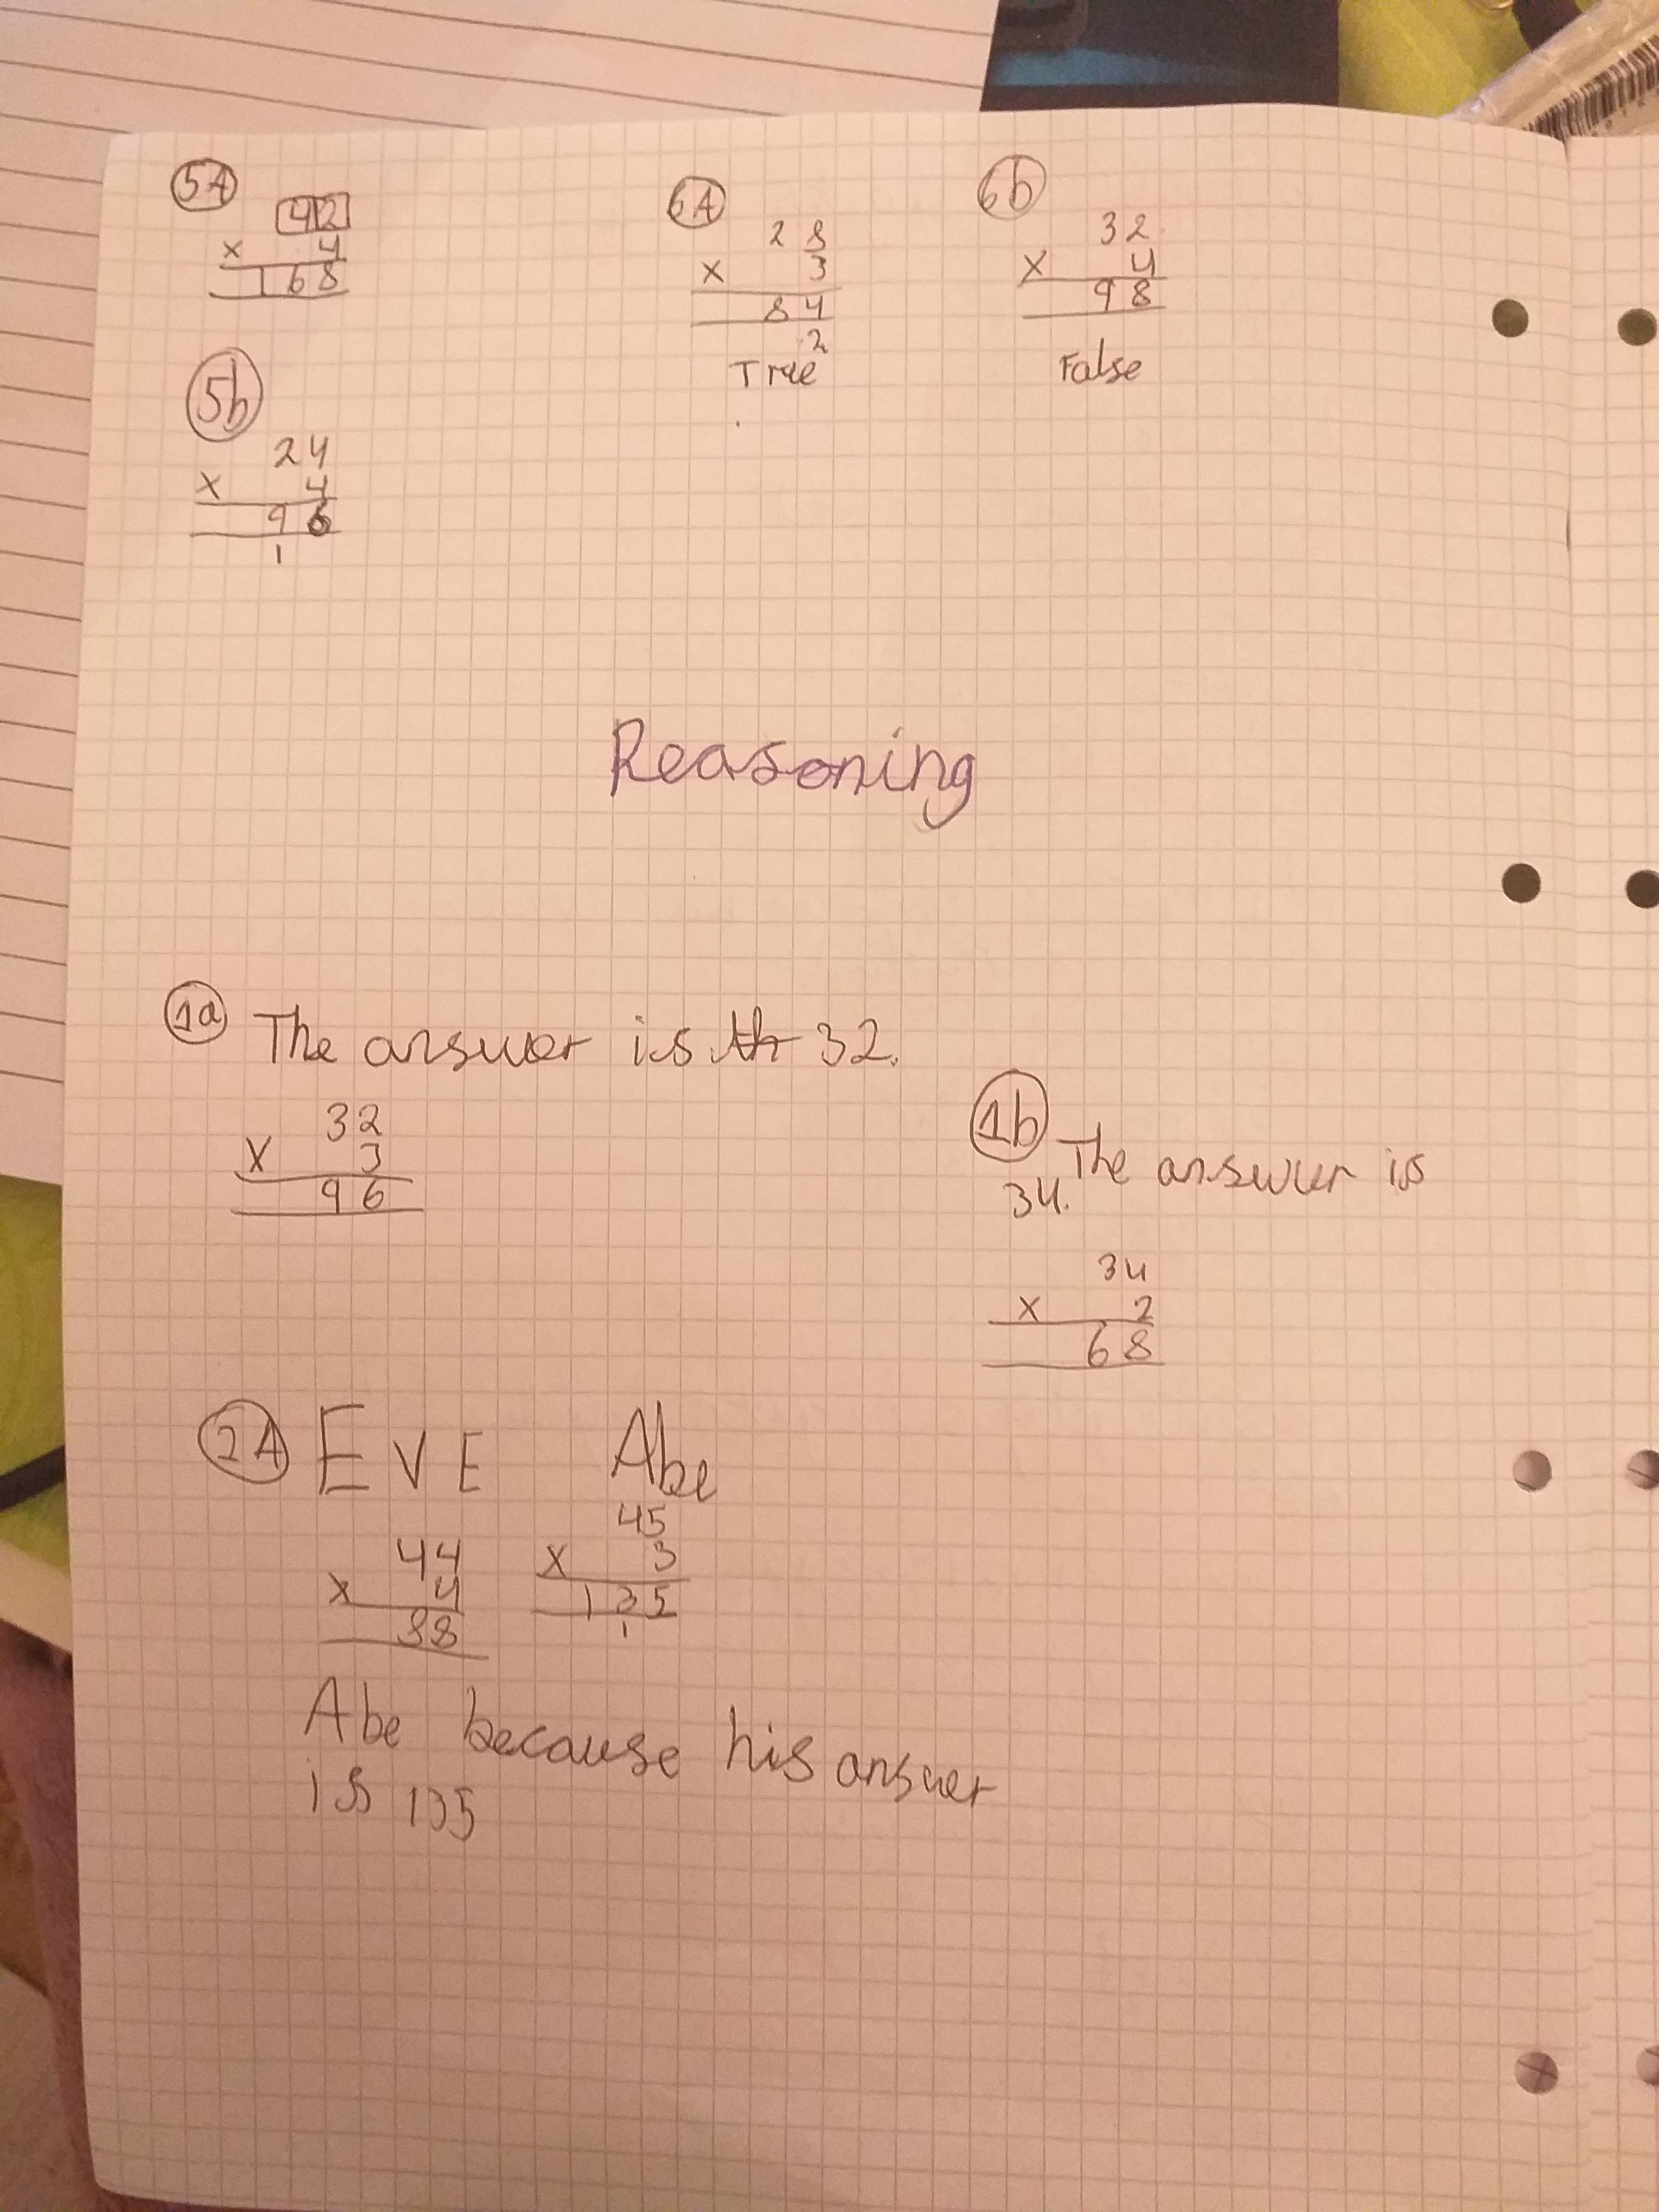 5A
42
× 4
168
5b
24
× 4
96
1
6A
28
× 3
84
2
True
6b
32
× 4
98
False
Reasoning
1a The answer is th 32.
32
× 3
96
1b The answer is
34.
34
× 2
68
2A EVE Abe
44
× 4
88
45
× 3
135
1
Abe because his answer
is 135